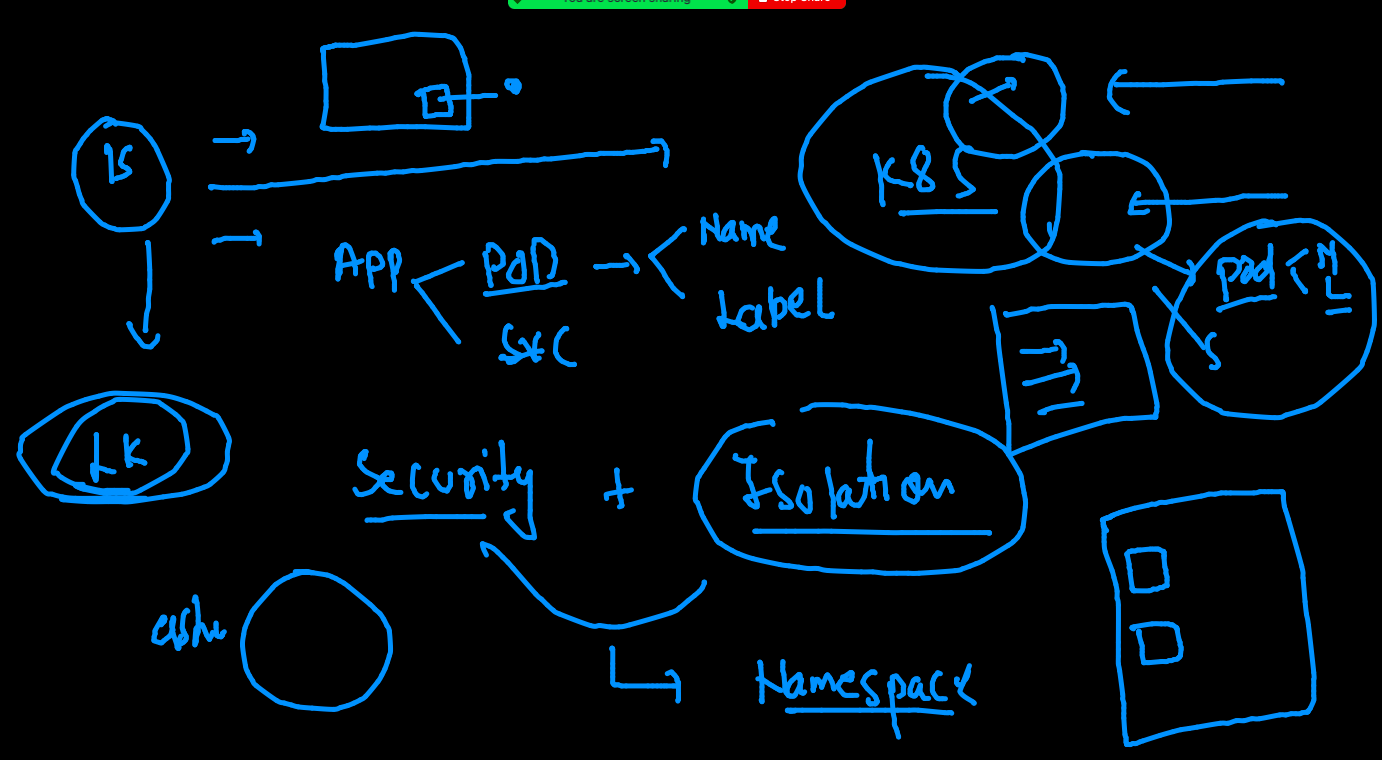 You are screen sharing Stop Share
15
K8S
App
POD
Name
Label
SVC
pod
N
L
S
LK
Security + Isolation
Namespace